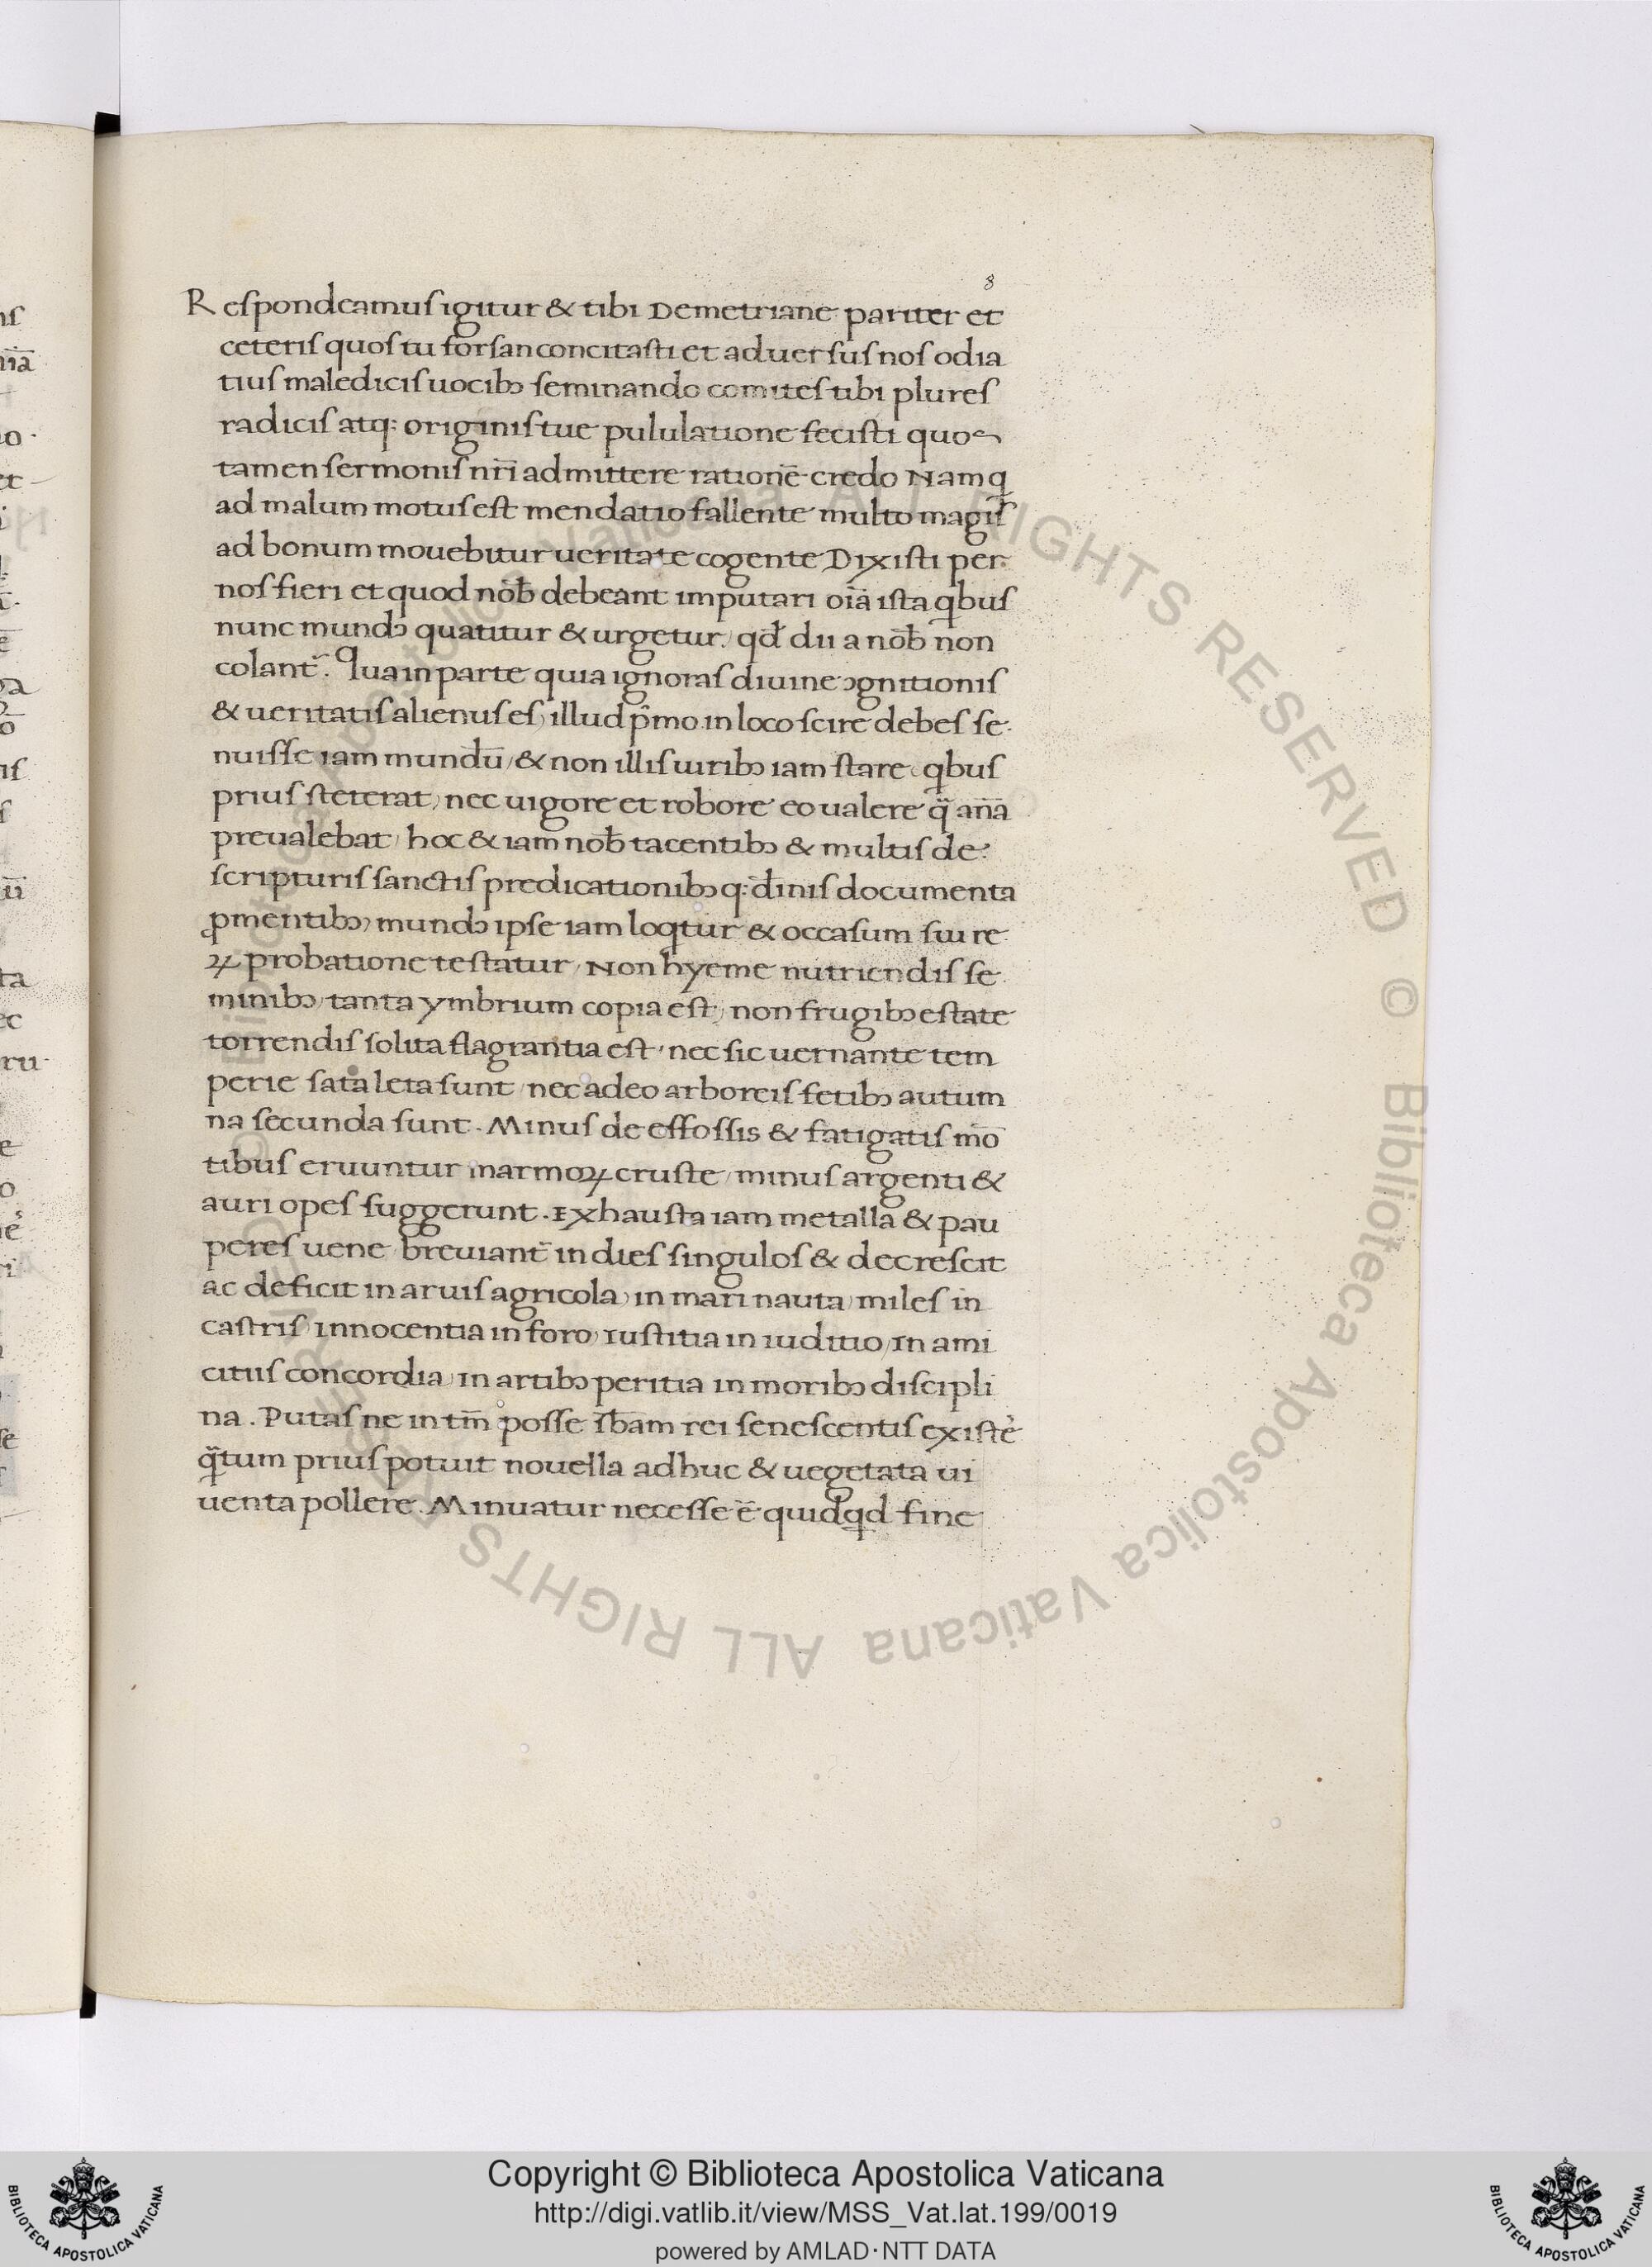 8
Reſpondeamuſ igitur & tibi Demetriane pariter et
ceteriſ quoſ tu forſan concitaſti et aduerſuſ noſ odia
tiuſ malediciſ uocibꝫ ſeminando comiteſ tibi plureſ
radiciſ atq; originiſ tue pululatione feciſti quoſ
tamen ſermoniſ nr̄i admittere rationē credo Namq
ad malum motuſ eſt mendatio fallente multo magiſ
ad bonum mouebitur ueritate cogente Dixiſti per
noſ fieri et quod nob̄ debeant imputari oīa iſta qbuſ
nunc mundꝯ quatitur & urgetur. qđ dii a nob̄ non
colantᷣ. Qua in parte quia ignoraſ diuine ꝯgnitioniſ
& ueritatiſ alienuſ eſ, illud p̄mo in loco ſcire debeſ ſe
nuiſſe iam mundū, & non illiſ uiribꝫ iam ſtare qbuſ
priuſ ſteterat, nec uigore et robore eo ualere q̈ an̄a
preualebat, hoc & iam nob̄ tacentibꝫ & multiſ de
ſcripturiſ ſanctiſ predicationibꝫ q; diniſ documenta
ꝓmentibꝫ, mundꝯ ipſe iam loqtur & occaſum ſui re
ꝝ probatione teſtatur, Non hyeme nutriendiſ ſe
minibꝫ, tanta ymbrium copia eſt, non frugibꝫ eſtate
torrendiſ ſolita flagrantia eſt, nec ſic uernante tem
perie ſata leta ſunt, nec adeo arboreiſ fetibꝫ autum
na fecunda ſunt. Minuſ de effoſſis & fatigatiſ mō
tibuſ eruuntur marmoꝝ cruſte, minuſ argenti &
auri opeſ ſuggerunt. Exhauſta iam metalla & pau
pereſ uene breuiantᷣ in dieſ ſinguloſ & decreſcit
ac deficit in aruiſ agricola, in mari nauta, mileſ in
caſtriſ, innocentia in foro, iuſtitia in iuditio, in ami
citiiſ concordia, in artibꝫ peritia in moribꝫ diſcipli
na. Putaſ ne in tm̄ poſſe ſb̄am rei ſeneſcentiſ exiſtē
q̈tum priuſ potuit nouella adhuc & uegetata ui
uenta pollere. Minuatur neceſſe ē quidqd fine
© Biblioteca Apostolica Vaticana ALL RIGHTS RESERVED
© Biblioteca Apostolica Vaticana ALL RIGHTS RESERVED
Copyright © Biblioteca Apostolica Vaticana
http://digi.vatlib.it/view/MSS_Vat.lat.199/0019
powered by AMLAD·NTT DATA
BIBLIOTECA APOSTOLICA VATICANA
BIBLIOTECA APOSTOLICA VATICANA